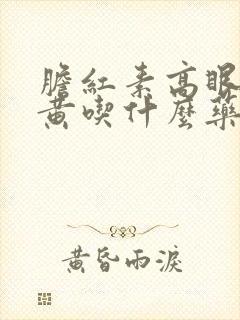 膽紅素高眼
黃喫什麼藥
黃昏雨淚